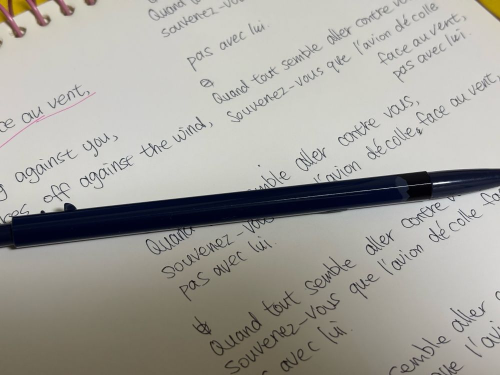 Quand tout
souvenez-vous que l'avion décolle
pas avec lui.
Quand tout semble aller contre vous,
souvenez-vous que l'avion décolle face au vent,
pas avec lui.
ce au vent,
g against you,
off against the wind,
semble aller contre vous,
l'avion décolle, face au vent
Quand
souvenez-vous
pas avec lui.
semble aller contre
que l'avion décolle fa
Quand tout semble aller
souvenez-vous que l'avion
avec lui.
semble aller
que l'avi